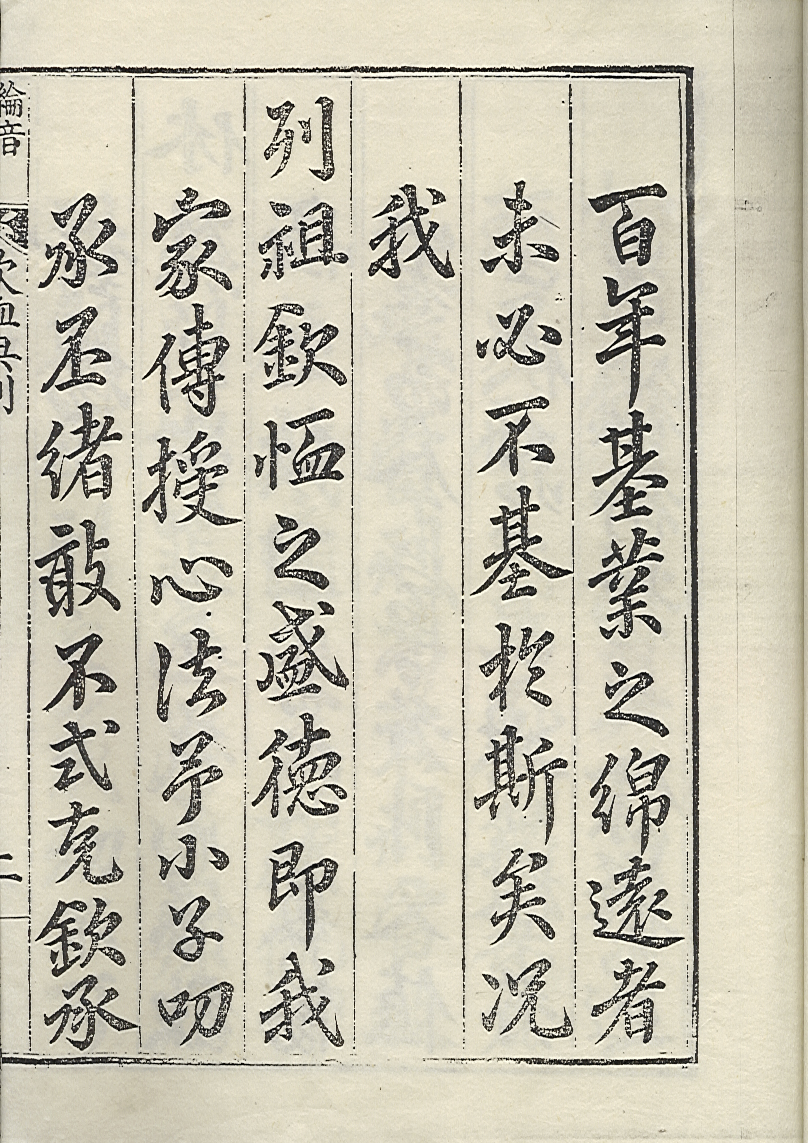 百年基業之綿遠者
未必不基於斯矣况
我
列祖欽恤之盛德即我
家傳授心法予小子叨
承丕緖敢不式克欽承
綸音